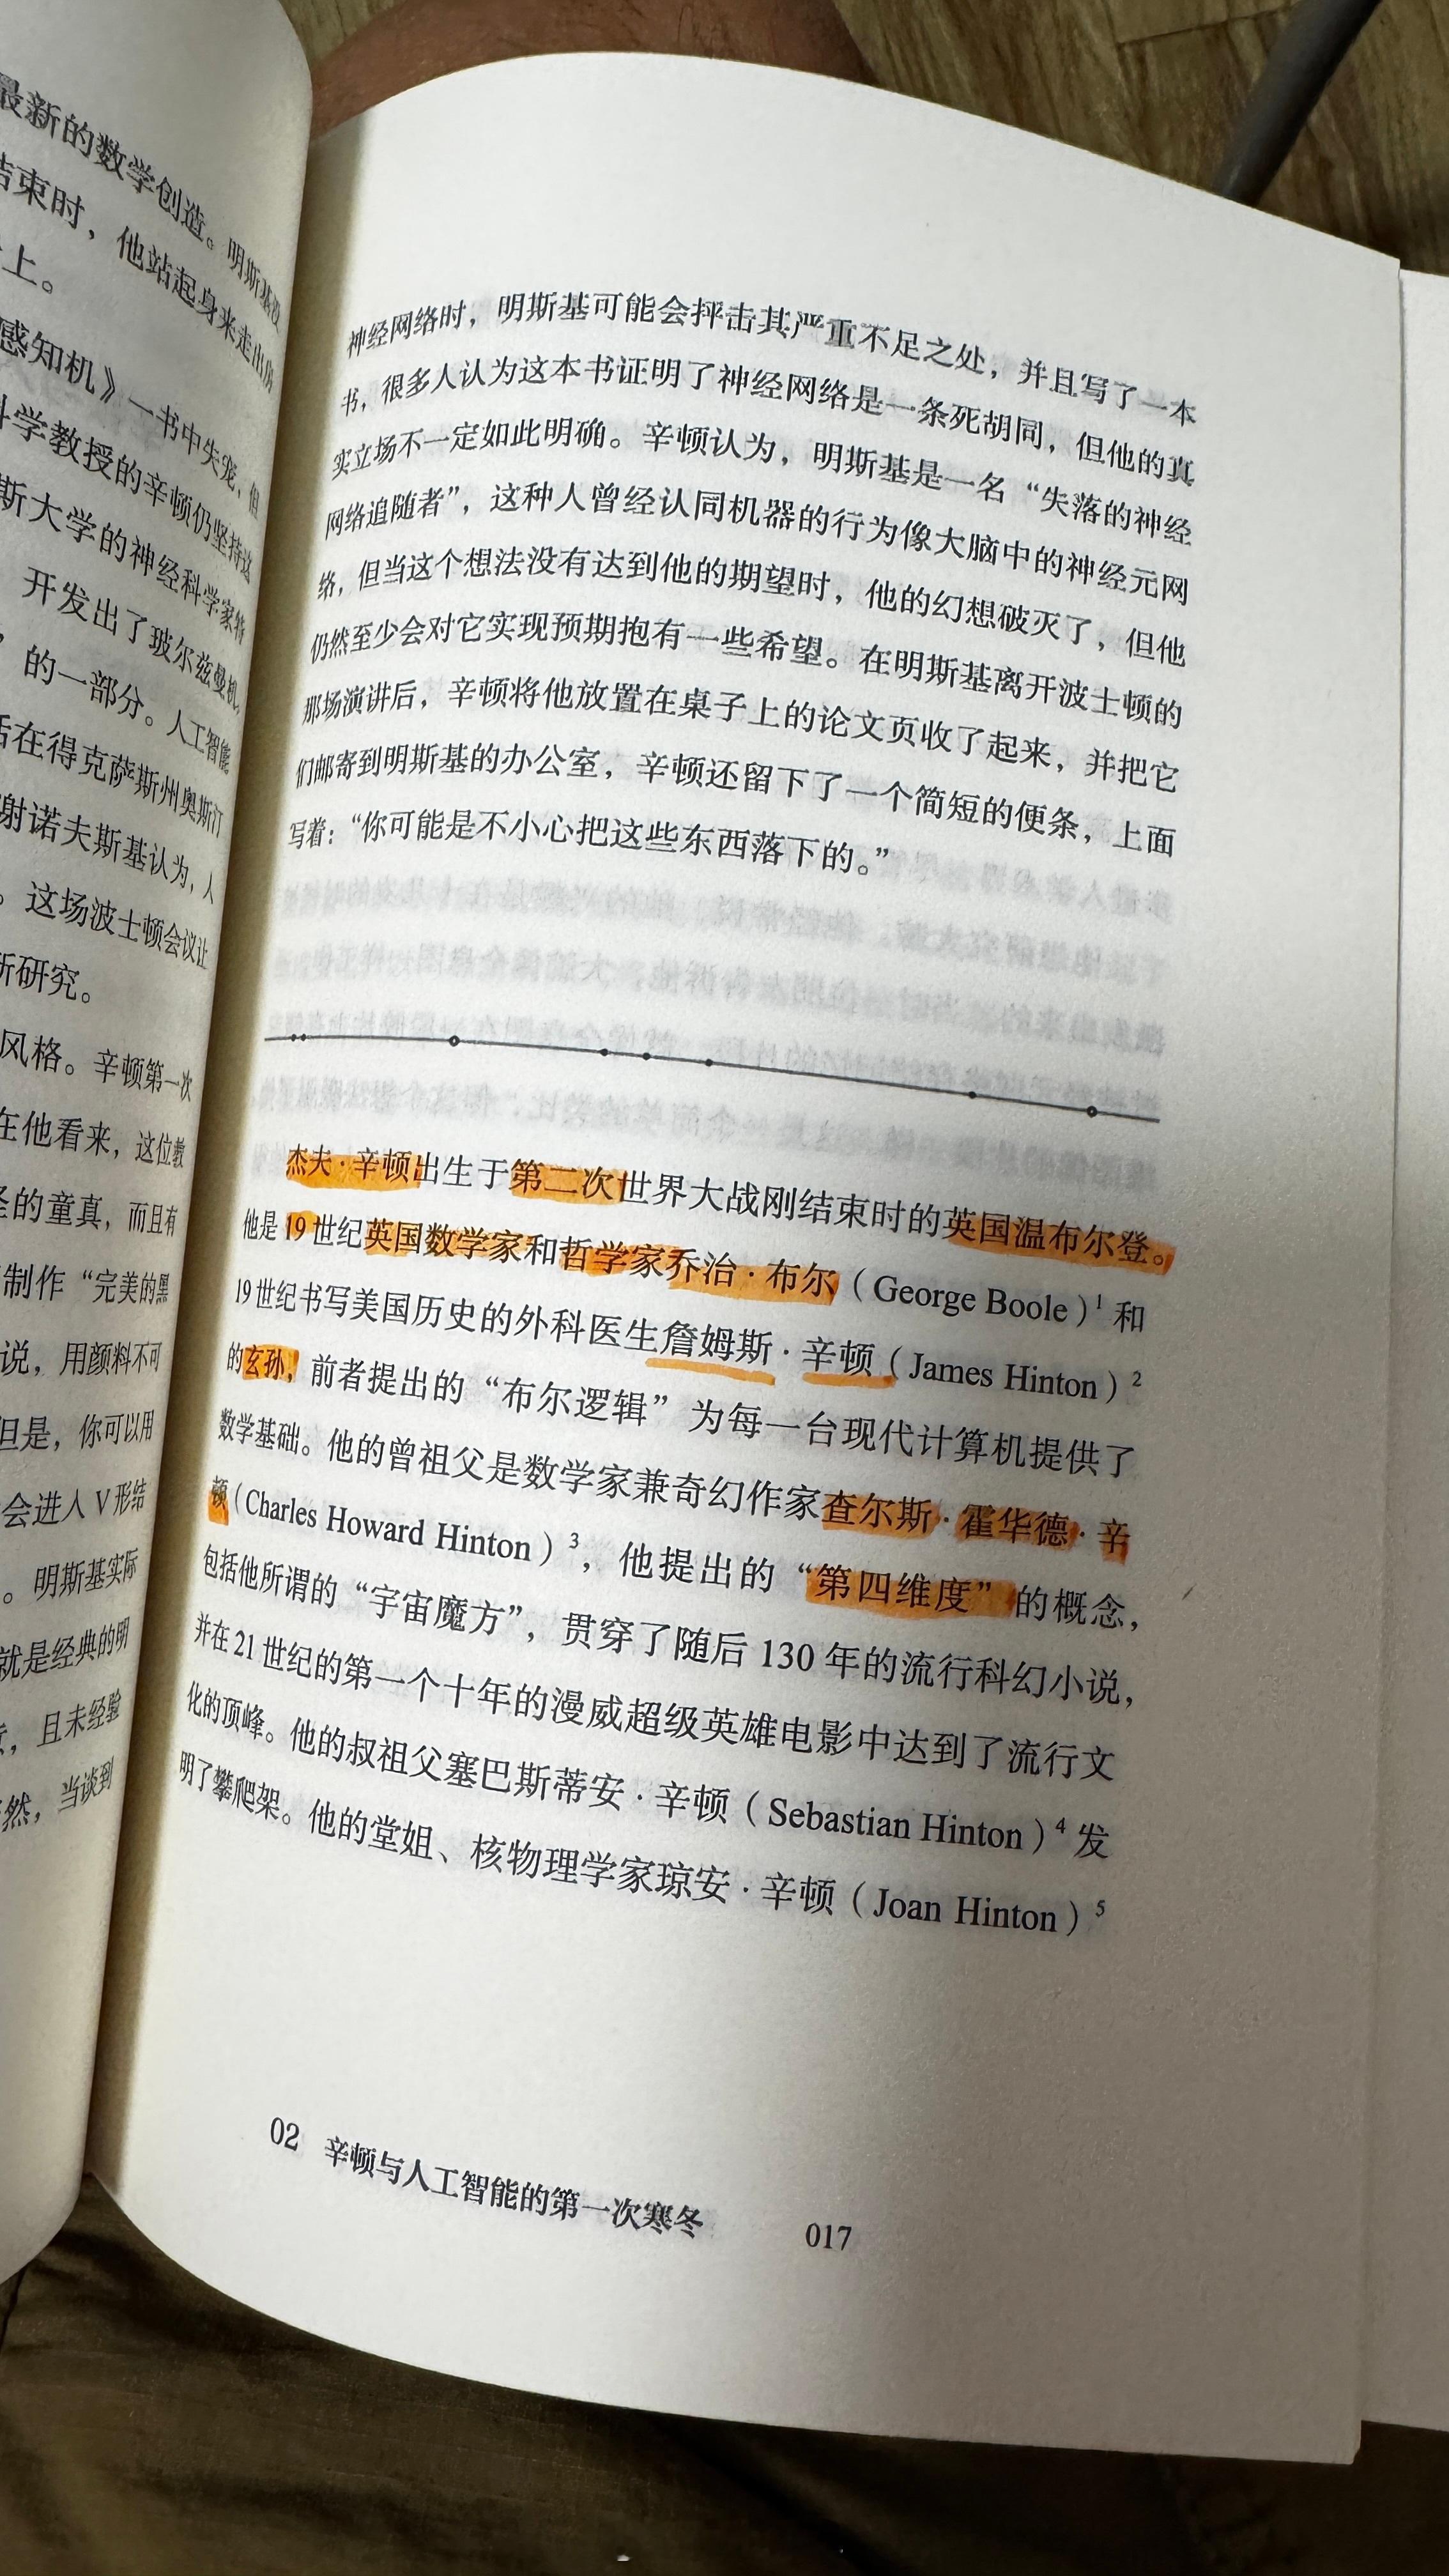 最新的数学创造。明斯基没
结束时，他站起身来走出房
上。
感知机》一书中失宠，但
科学教授的辛顿仍坚持这
斯大学的神经科学家特
开发出了玻尔兹曼机，
的一部分。人工智能
活在得克萨斯州奥斯汀
谢诺夫斯基认为，人
。这场波士顿会议让
研究。
风格。辛顿第一次
在他看来，这位教
的童真，而且有
制作“完美的黑
说，用颜料不可
但是，你可以用
会进入 V 形结
。明斯基实际
就是经典的明
，且未经验
然，当谈到
神经网络时，明斯基可能会抨击其严重不足之处，并且写了一本
书，很多人认为这本书证明了神经网络是一条死胡同，但他的真
实立场不一定如此明确。辛顿认为，明斯基是一名“失落的神经
网络追随者”，这种人曾经认同机器的行为像大脑中的神经元网
络，但当这个想法没有达到他的期望时，他的幻想破灭了，但他
仍然至少会对它实现预期抱有一些希望。在明斯基离开波士顿的
那场演讲后，辛顿将他放置在桌子上的论文页收了起来，并把它
们邮寄到明斯基的办公室，辛顿还留下了一个简短的便条，上面
写着：“你可能是不小心把这些东西落下的。”
杰夫·辛顿出生于第二次世界大战刚结束时的英国温布尔登。
他是 19 世纪英国数学家和哲学家乔治·布尔（George Boole）1 和
19 世纪书写美国历史的外科医生詹姆斯·辛顿（James Hinton）2
的玄孙，前者提出的“布尔逻辑”为每一台现代计算机提供了
数学基础。他的曾祖父是数学家兼奇幻作家查尔斯·霍华德·辛
顿（Charles Howard Hinton）3，他提出的“第四维度”的概念，
包括他所谓的“宇宙魔方”，贯穿了随后 130 年的流行科幻小说，
并在 21 世纪的第一个十年的漫威超级英雄电影中达到了流行文
化的顶峰。他的叔祖父塞巴斯蒂安·辛顿（Sebastian Hinton）4 发
明了攀爬架。他的堂姐、核物理学家琼安·辛顿（Joan Hinton）5
02 辛顿与人工智能的第一次寒冬 017